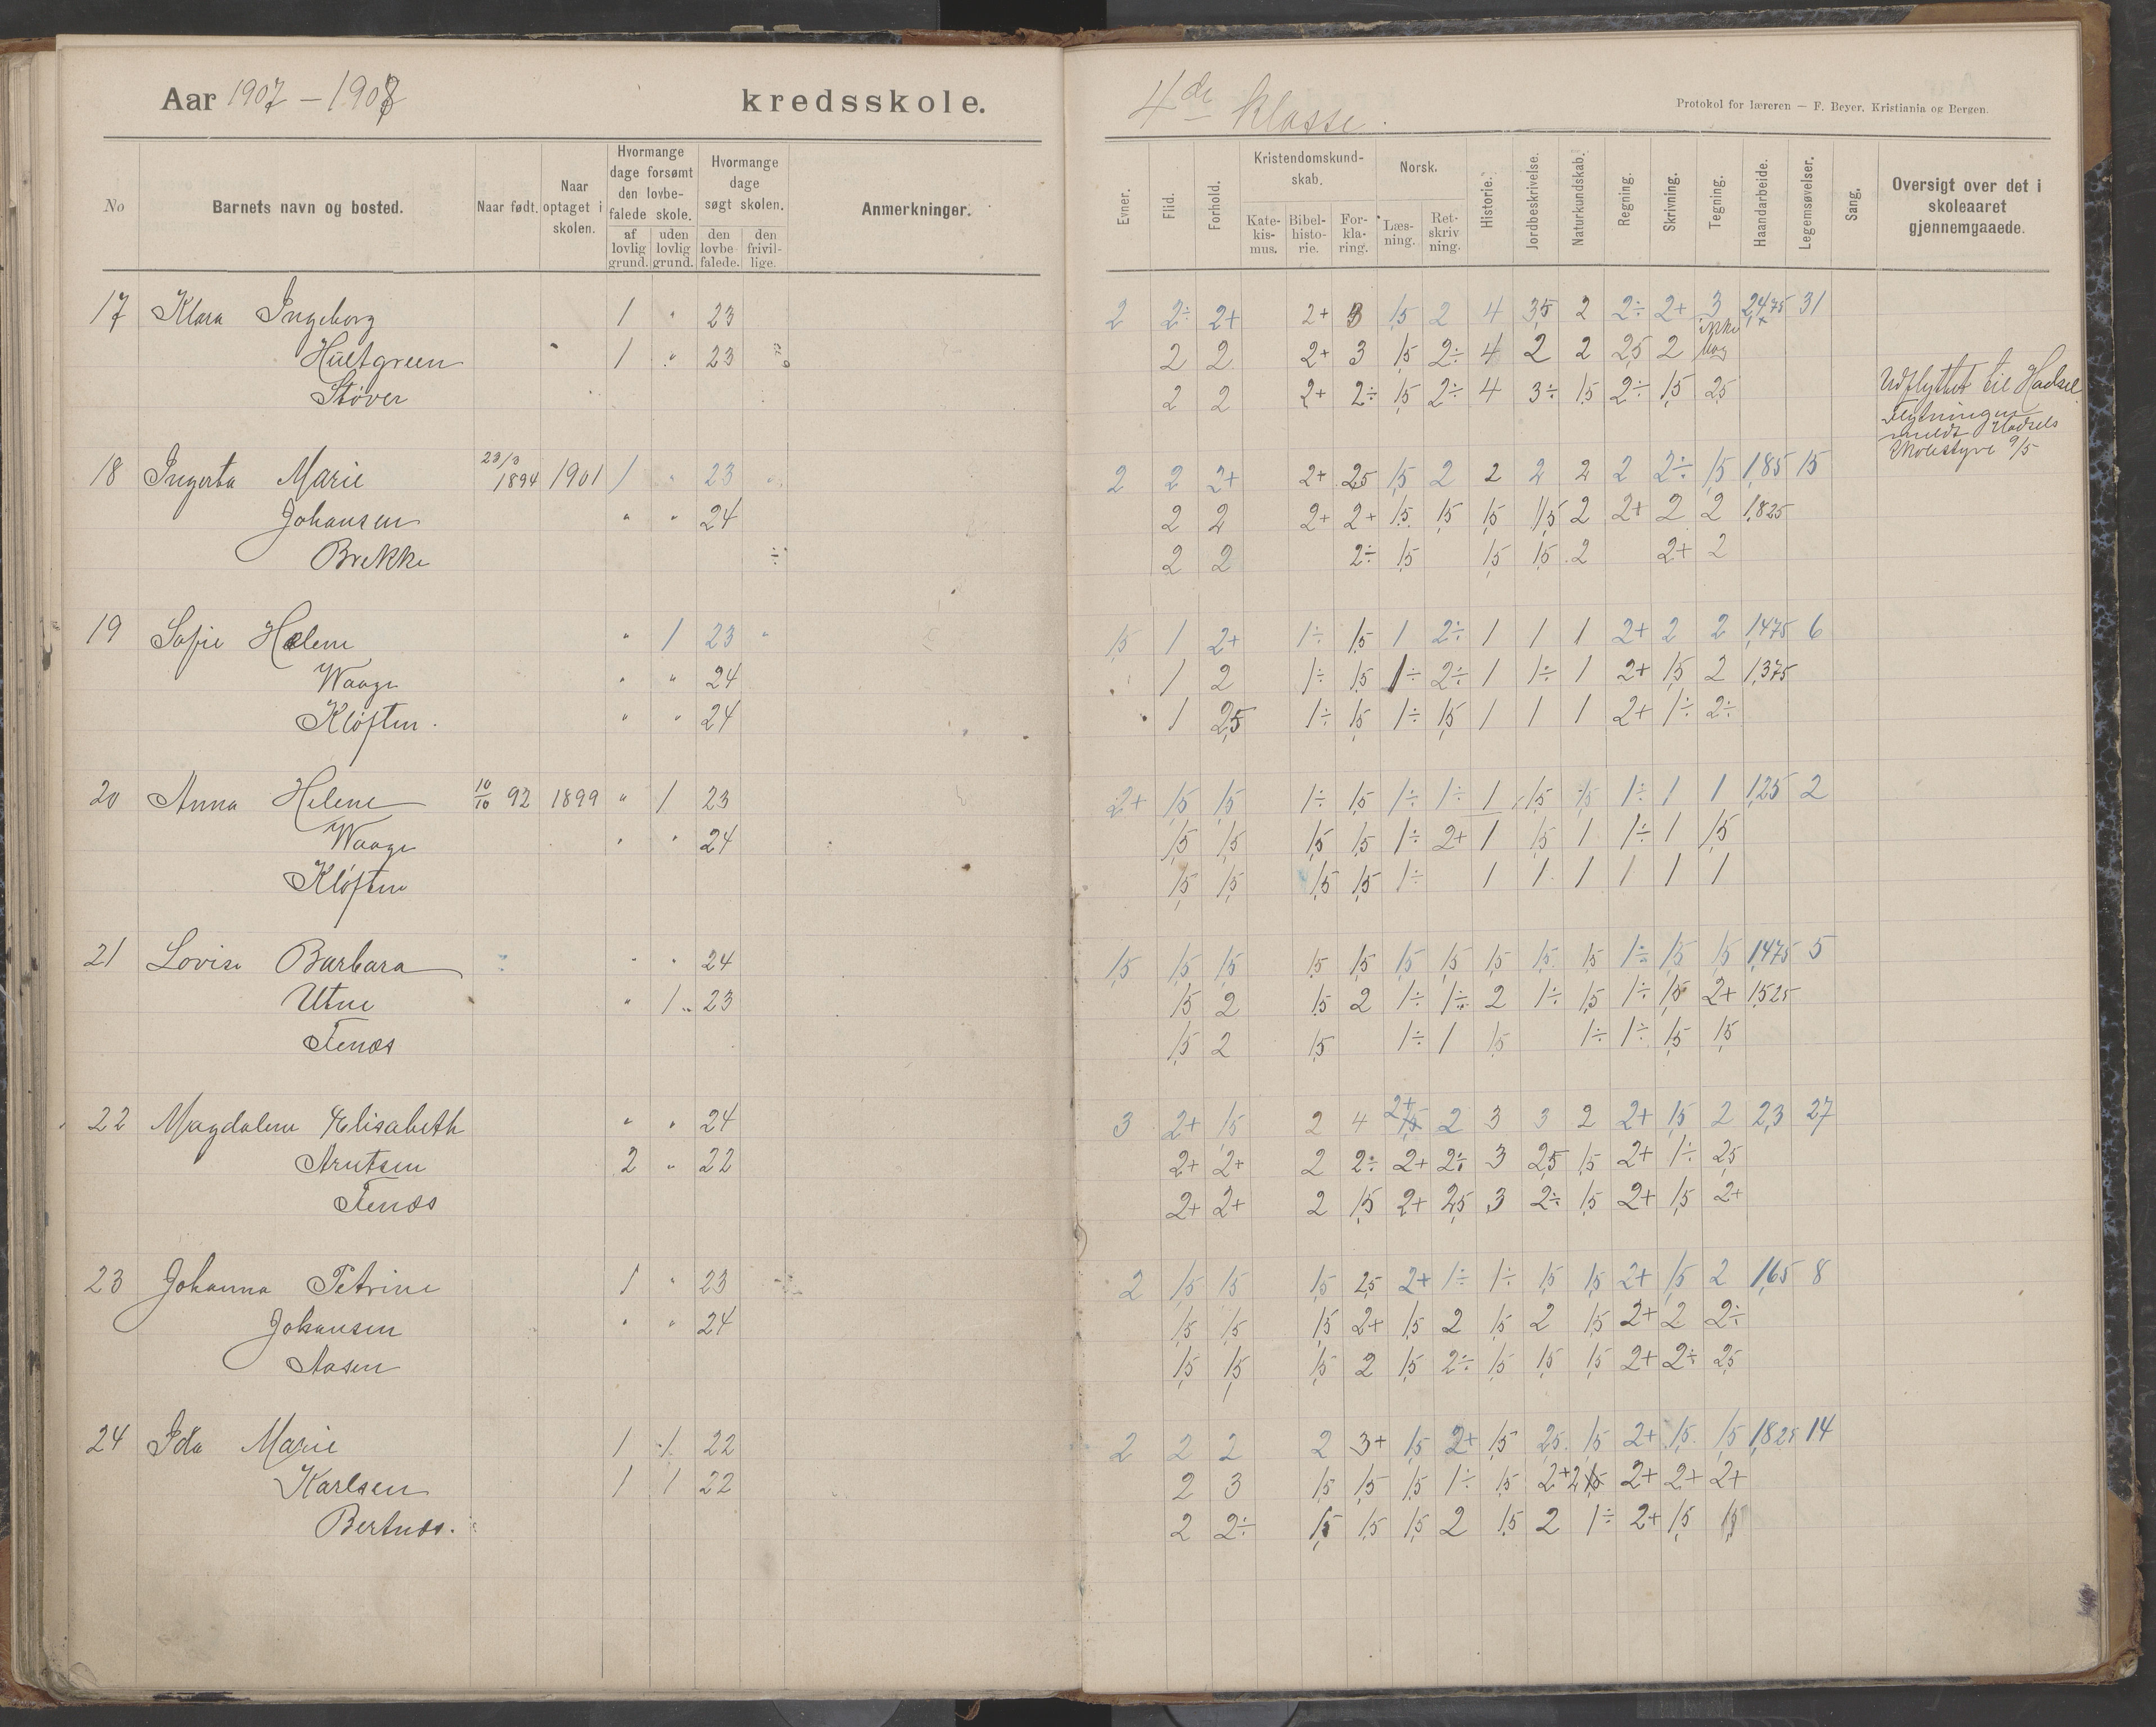 Aar 1907 – 1908 kredsskole. 4de klasse.
Protokol for læreren — F. Beyer, Kristiania og Bergen.
No Barnets navn og bosted. Naar født. Naar optaget i skolen. Hvormange dage forsømt den lovbefalede skole. af lovlig grund. uden lovlig grund. Hvormange dage søgt skolen. den lovbefalede. den frivillige. Anmerkninger.
Evner. Flid. Forhold. Kristendomskundskab. Katekismus. Bibelhistorie. Forklaring. Norsk. Læsning. Retskrivning. Historie. Jordbeskrivelse. Naturkundskab. Regning. Skrivning. Tegning. Haandarbeide. Legemsøvelser. Sang. Oversigt over det i skoleaaret gjennemgaaede.
17 Klara Ingeborg 1 " 23 2 2÷ 2+ 2+ 3 1,5 2 4 3,5 2 2÷ 2+ 3 2,475 31
Hultgreen 1 " 23 2 2 2+ 3 1,5 2÷ 4 2 2 2,5 2 ikke
Støver 2 2 2+ 2÷ 1,5 2÷ 4 3÷ 1,5 2÷ 1,5 2,5
Udflyttet til Hadsel
Flytningen
meldt Hadsels
skolestyre 9/5
18 Ingerta Marie 23/3 1894 1901 1 " 23 2 2 2+ 2+ 2,5 1,5 2 2 2 2 2 2÷ 1,5 1,85 15
Johansen " " 24 2 2 2+ 2+ 1,5 1,5 1,5 1,5 2 2+ 2 2 1,825
Brekke 2 2 2÷ 1,5 1,5 1,5 2 2+ 2
19 Sofie Helene " 1 23 " 1,5 1 2+ 1÷ 1,5 1 2÷ 1 1 1 2+ 2 2 1,475 6
Waage " " 24 1 2 1÷ 1,5 1÷ 2÷ 1 1÷ 1 2+ 1,5 2 1,375
Kløften. " " 24 1 2,5 1÷ 1,5 1÷ 1,5 1 1 1 2+ 1÷ 2÷
20 Anna Helene 10/10 92 1899 " 1 23 2+ 1,5 1,5 1÷ 1,5 1÷ 1÷ 1 1,5 1,5 1÷ 1 1 1,25 2
Waage " " 24 1,5 1,5 1,5 1,5 1÷ 2+ 1 1,5 1 1÷ 1 1,5
Kløften 1,5 1,5 1,5 1,5 1÷ 1 1 1 1 1 1
21 Lovise Barbara " " 24 1,5 1,5 1,5 1,5 1,5 1,5 1,5 1,5 1,5 1,5 1÷ 1,5 1,5 1,475 5
Utne " 1 23 1,5 2 1,5 2 1÷ 1÷ 2 1÷ 1,5 1÷ 1,5 2+ 1,525
Fenæs 1,5 2 1,5 1÷ 1 1,5 1÷ 1÷ 1,5 1,5
22 Magdalene Elisabeth " " 24 3 2+ 1,5 2 4 2+ 2 3 3 2 2+ 1,5 2 2,3 27
Arntsen 2 " 22 2+ 2+ 2 2÷ 2+ 2÷ 3 2,5 1,5 2+ 1÷ 2,5
Fenæs 2+ 2+ 2 1,5 2+ 2,5 3 2÷ 1,5 2+ 1,5 2+
23 Johanna Petrine 1 " 23 2 1,5 1,5 1,5 2,5 2+ 1÷ 1÷ 1,5 1,5 2+ 1,5 2 1,65 8
Johansen " " 24 1,5 1,5 1,5 2+ 1,5 2 1,5 2 1,5 2+ 2 2÷
Aasen 1,5 1,5 1,5 2 1,5 2÷ 1,5 1,5 1,5 2+ 2÷ 2,5
24 Ida Marie 1 1 22 2 2 2 2 3+ 1,5 2+ 1,5 2,5 1,5 2+ 1,5 1,5 1,825 14
Karlsen 1 1 22 2 3 1,5 1,5 1,5 1÷ 1,5 2+ 2 2+ 2+ 2+
Bertnæs. 2 2÷ 1,5 1,5 1,5 2 1,5 2 1÷ 2+ 1,5 1,5